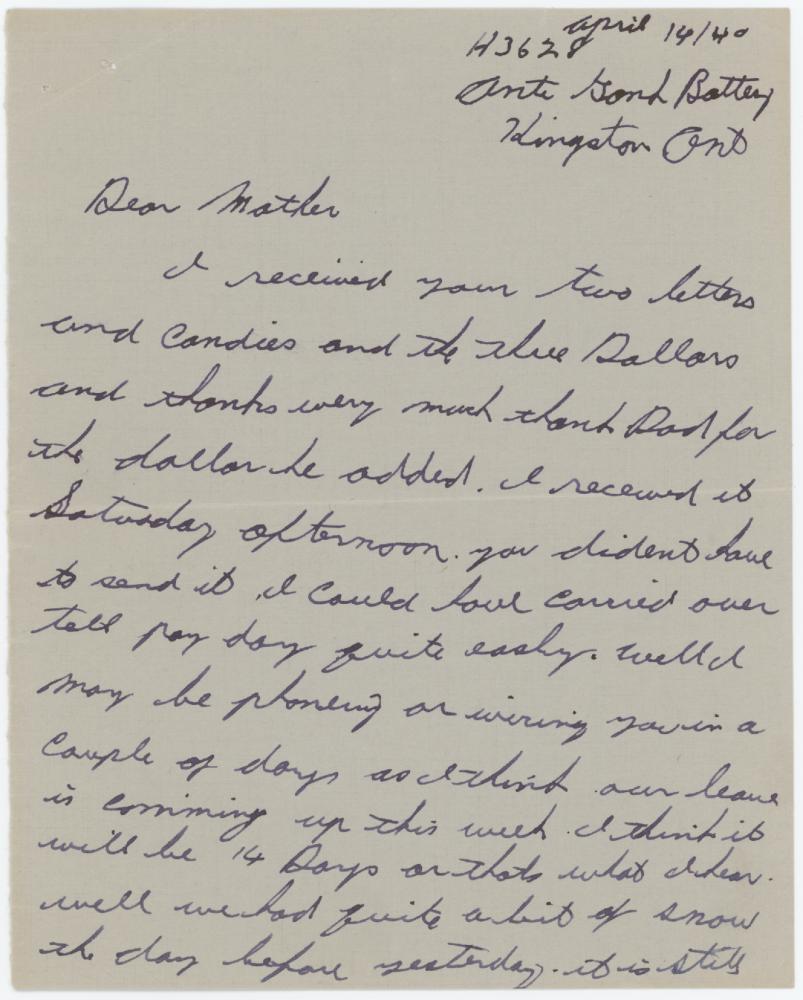 april 14/40
H3628
Ante Gank Battery
Kingston Ont
Dear Mother
I received your two letters
and Candies and the three Dollars
and thanks very much thank Dad for
the dollar he added. I received it
Saturday afternoon. you dident have
to send it, I could have carried over
tell pay day quite easly. well I
may be phoneing or wiring you in a
couple of days as I think our leave
is comming up this week. I think it
will be 14 Days or thats what I hear.
well we had quite a bit of snow
the day before yesterday. it is still